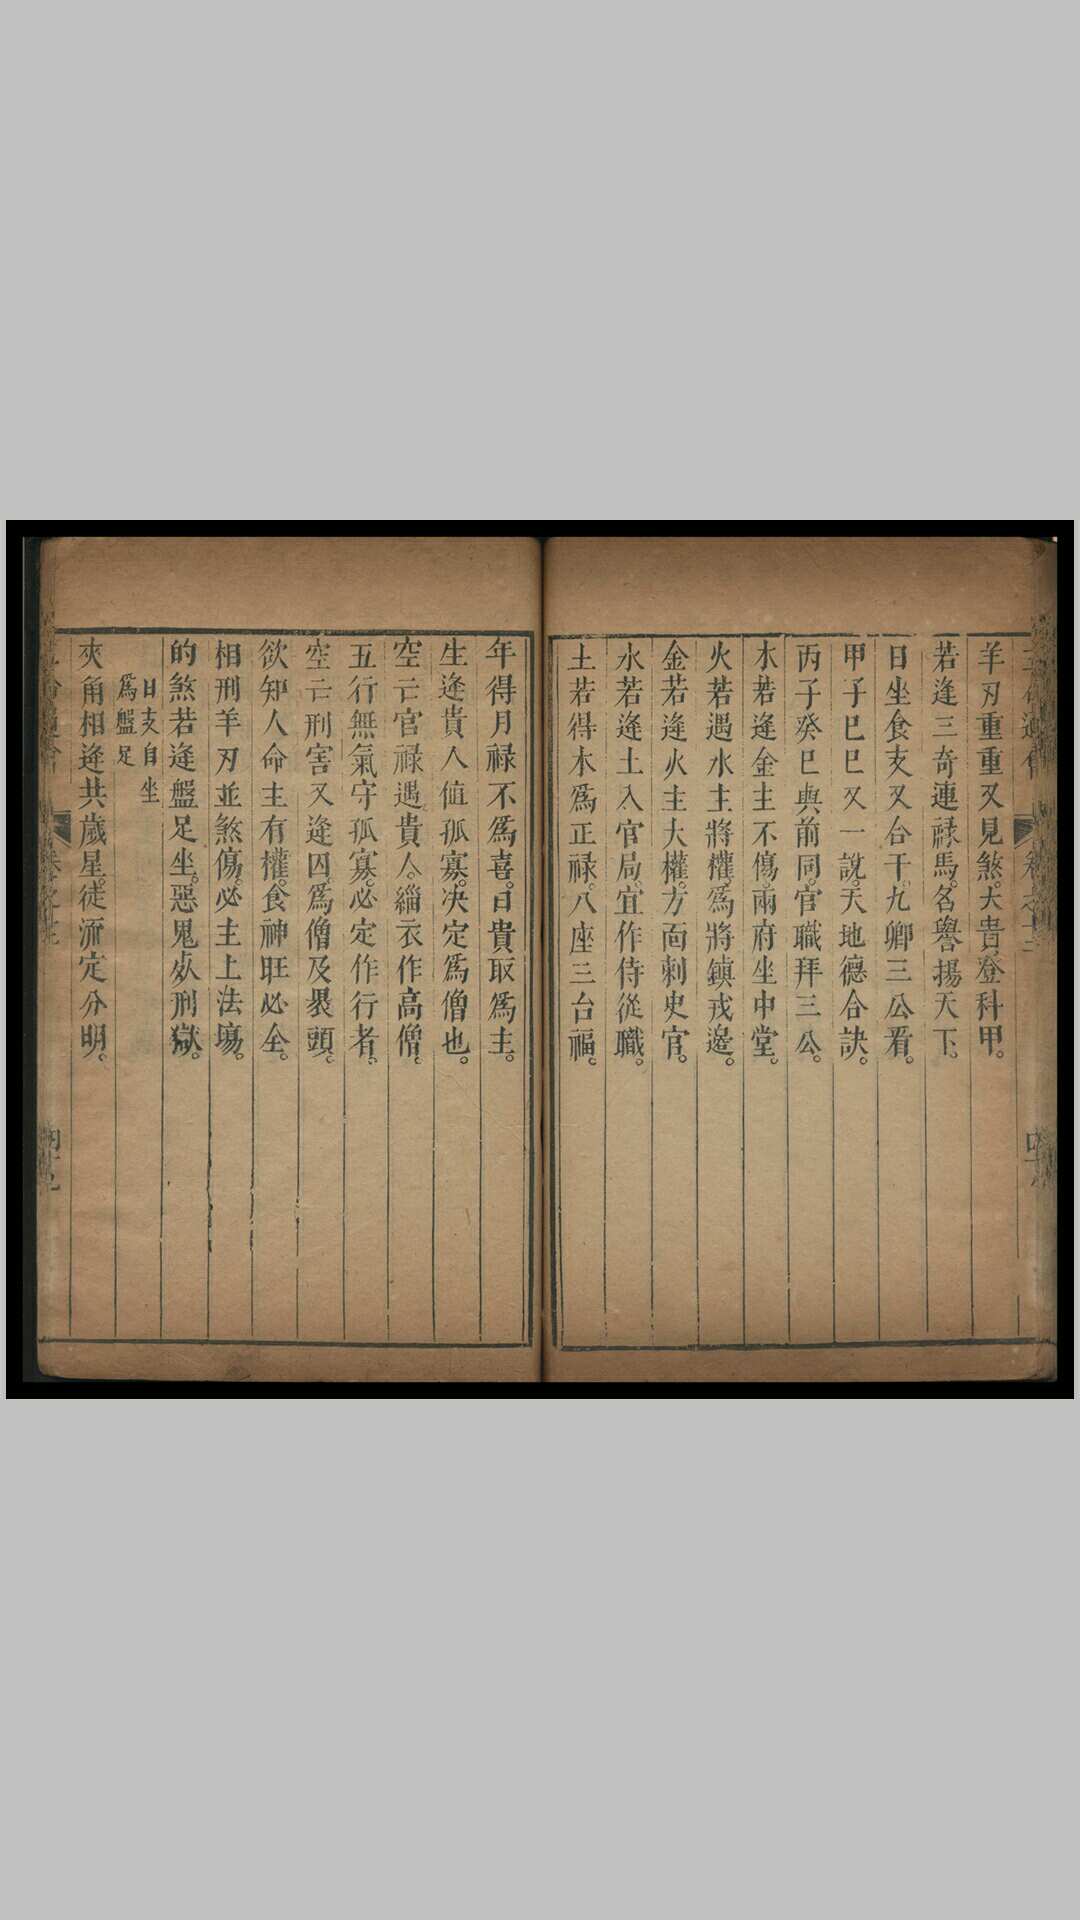 羊刃重重又見煞。大貴登科甲。
若逢三奇連祿馬。名譽揚天下。
日坐食支又合干。九卿三公看。
甲子巳巳又一說。天地德合訣。
丙子癸巳與前同。官職拜三公。
木若逢金主不傷。兩府坐中堂。
火若遇水主將權。為將鎮戎邊。
金若逢火主大權。方面刺史官。
水若逢土入官局。宜作侍從職。
土若得木為正祿。八座三台福。
年得月祿不為喜。日貴取為主。
生逢貴人值孤寡。决定為僧也。
空亡官祿遇貴人。緇衣作高僧。
五行無氣守孤寡。必定作行者。
空亡刑害又逢囚。為僧及褁頭。
欲知人命主有權。食神旺必全。
相刑羊刃並煞傷。必主上法塲。
的煞若逢盤足坐。惡鬼处刑獄。
日支自坐
為盤足
夾角相逢共歲星。徒流定分明。